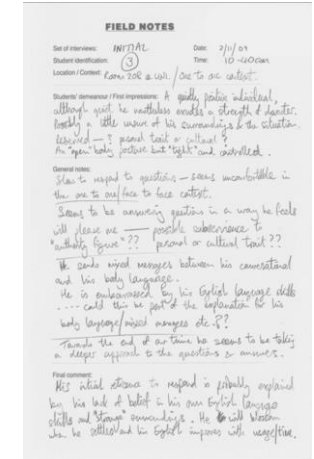 FIELD NOTES
Set of interviews: INITIAL Date: 2/11/09
Student identification: 3 Time: 10-40am
Location / Context: Room 208 @ / one to one context.
Students' demeanour / First impressions: A quietly positive individual,
although quiet, he nonetheless exudes a strength of character.
Possibly a little unsure of his surroundings & the situation.
Reserved — ? personal trait or cultural?
An "open" body posture but "tight" and controlled.
General notes:
Slow to respond to questions — seems uncomfortable in
the one to one/face to face context.
Seems to be answering questions in a way he feels
will please me — possible subservience to
"authority figure"?? personal or cultural trait??
He sends mixed messages between his conversational
and his body language.
He is embarrassed by his English language skills
.... could this be part of the explanation for his
body language/mixed messages etc.??
Towards the end of our time he seems to be taking
a deeper approach to the questions & answers.
Final comment:
His initial to respond is probably explained
by his lack of belief in his own English language
skills and "strange" surroundings. He will blossom
when he settles and his English improves with usage/time.